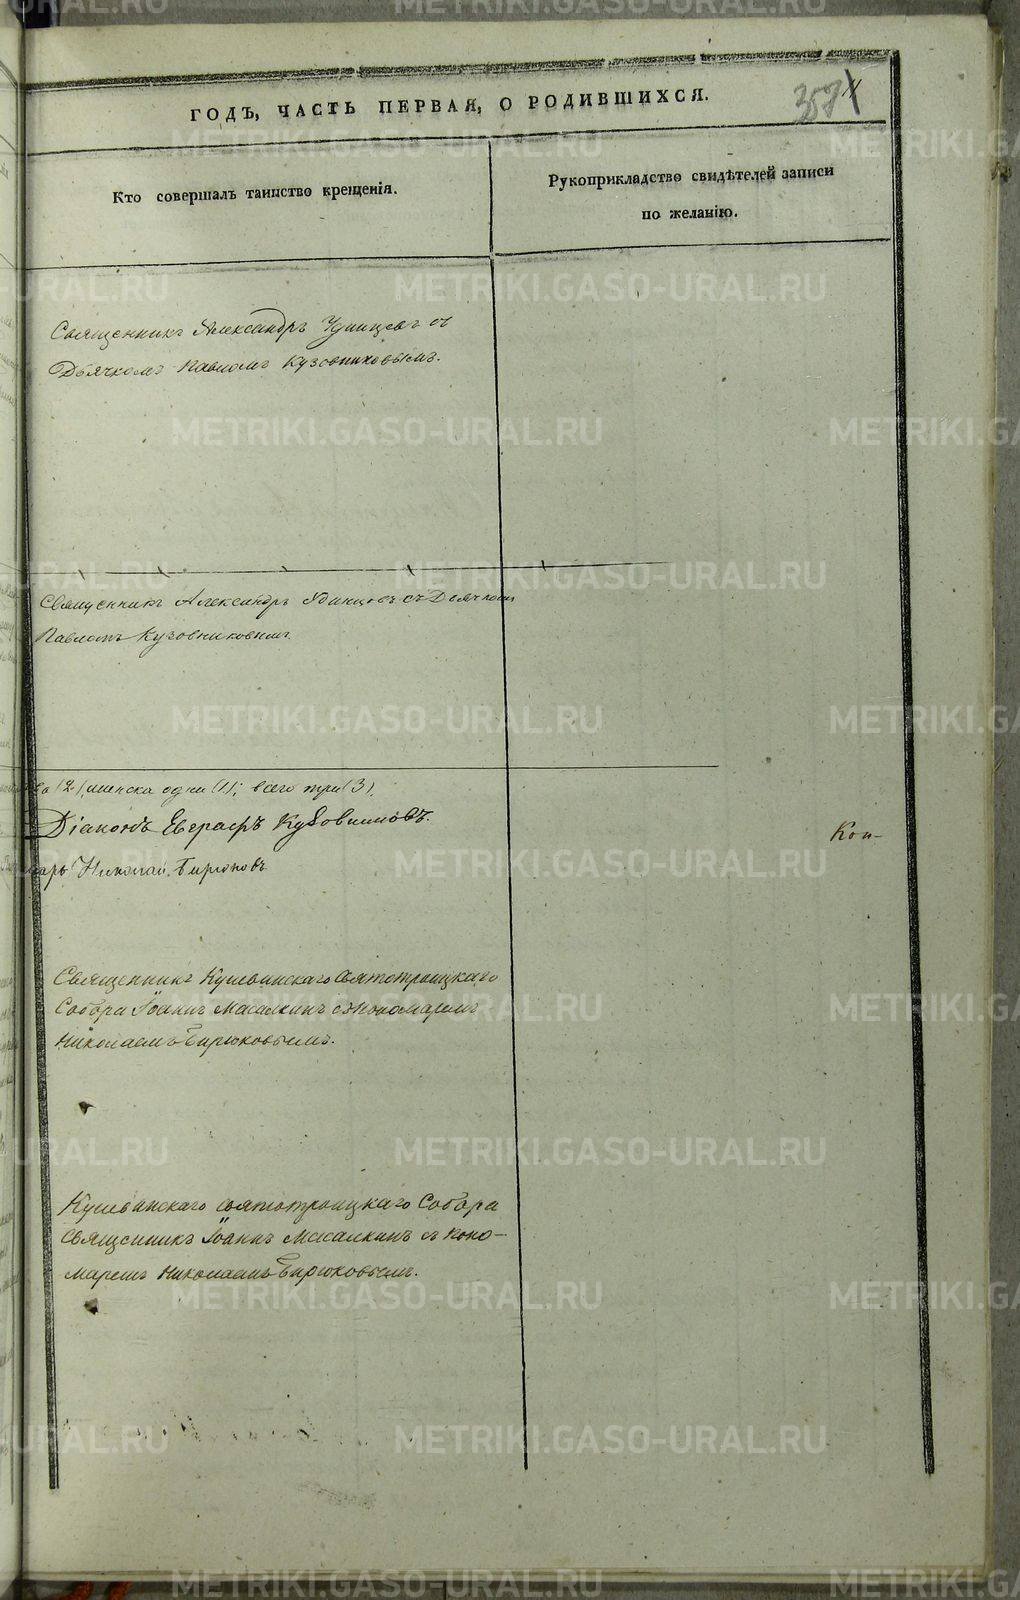 ГОДЪ, ЧАСТЬ ПЕРВАЯ, О РОДИВШИХСЯ.
357
Кто совершалъ таинство крещенія.
Рукоприкладство свидѣтелей записи
по желанію.
Священникъ Александръ Удинцовъ съ
Дьячкомъ Павломъ Кузовниковымъ.
Священникъ Александръ Удинцовъ съ Дьячкомъ
Павломъ Кузовниковымъ.
(2), женска одна (1); всего три (3).
Діаконъ Евграфъ
Николай Бирюковъ
Коп-
Священникъ Кушвинскаго Святотроицкаго
Собора Іоаннъ Масалкинъ съ пономаремъ
Николаемъ Бирюковымъ.
Кушвинскаго Святотроицкаго Собора
Священникъ Іоаннъ Масалкинъ съ Поно-
маремъ Николаемъ Бирюковымъ.
METRIKI.GASO-URAL.RU